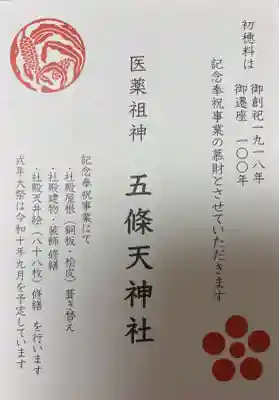 初穂料は
御創祀一九一八年
御遷座　一〇〇年
記念奉祝事業の懇財とさせていただきます
医薬祖神　五條天神社
記念奉祝事業にて
・社殿屋根（銅板・桧皮）葺き替え
・社殿建物・装飾修繕
・社殿天井絵（八十八枚）修繕　を行います
式年大祭は令和十年九月を予定しています